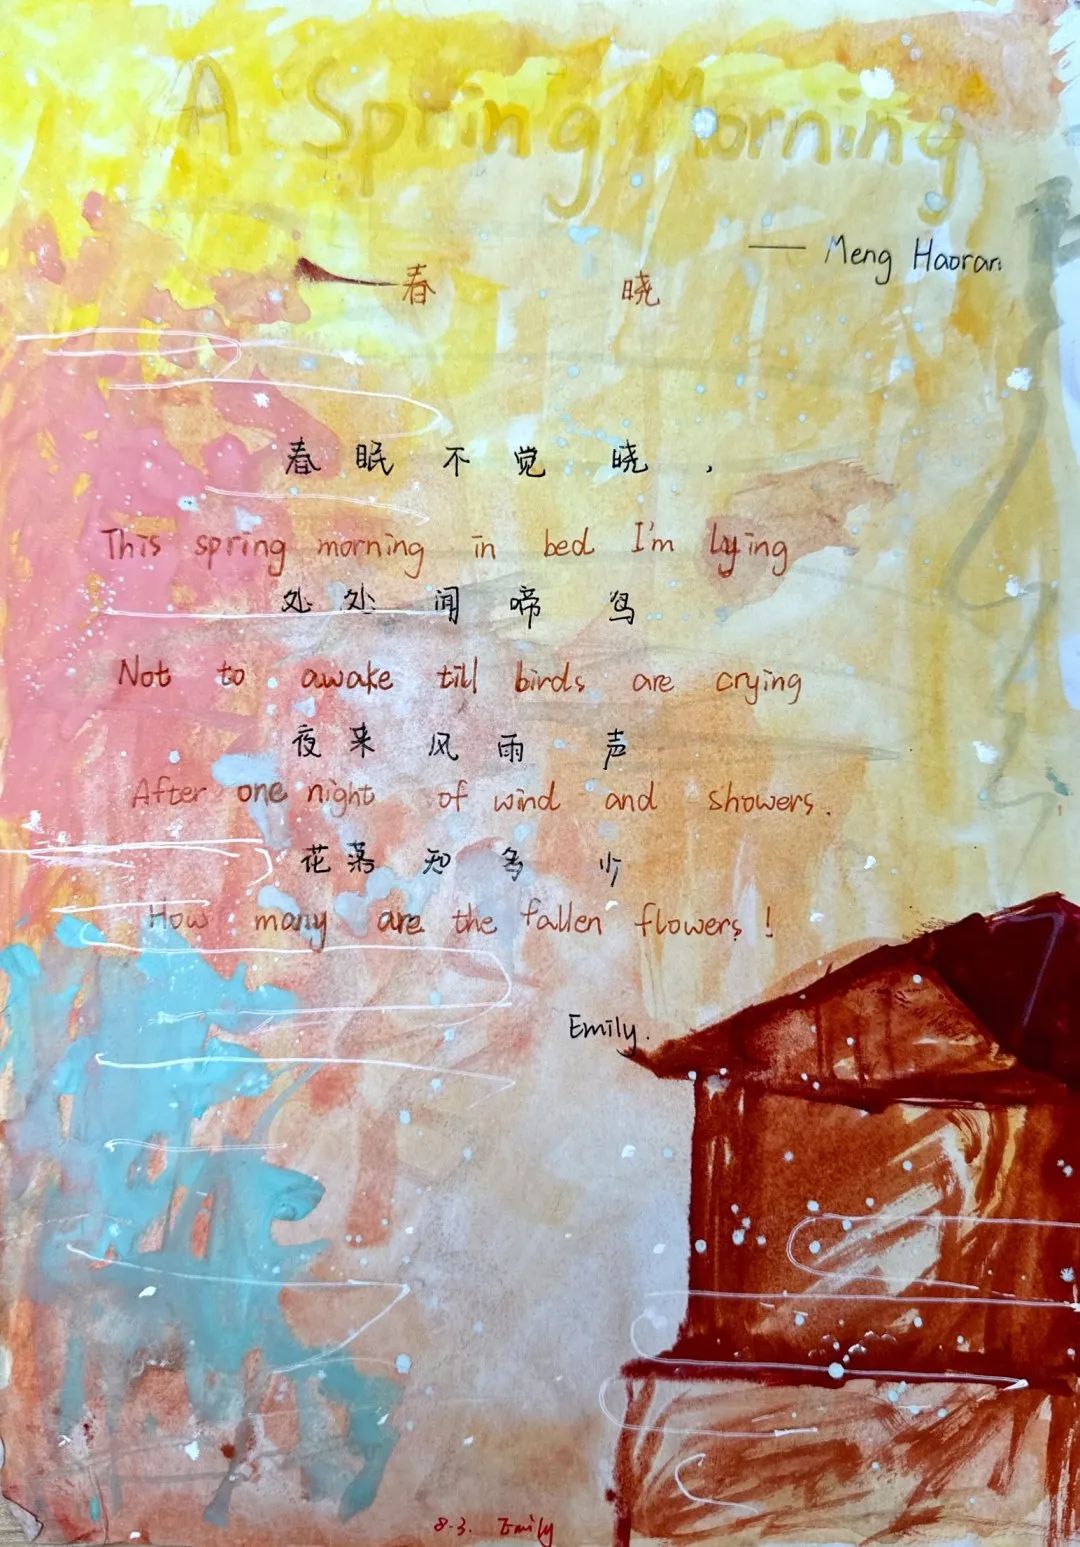 A Spring Morning
—— Meng Haoran
春 晓
春眠不觉晓，
This spring morning in bed I'm lying
处处闻啼鸟
Not to awake till birds are crying
夜来风雨声
After one night of wind and showers.
花落知多少
How many are the fallen flowers!
Emily.
8.3. Emily